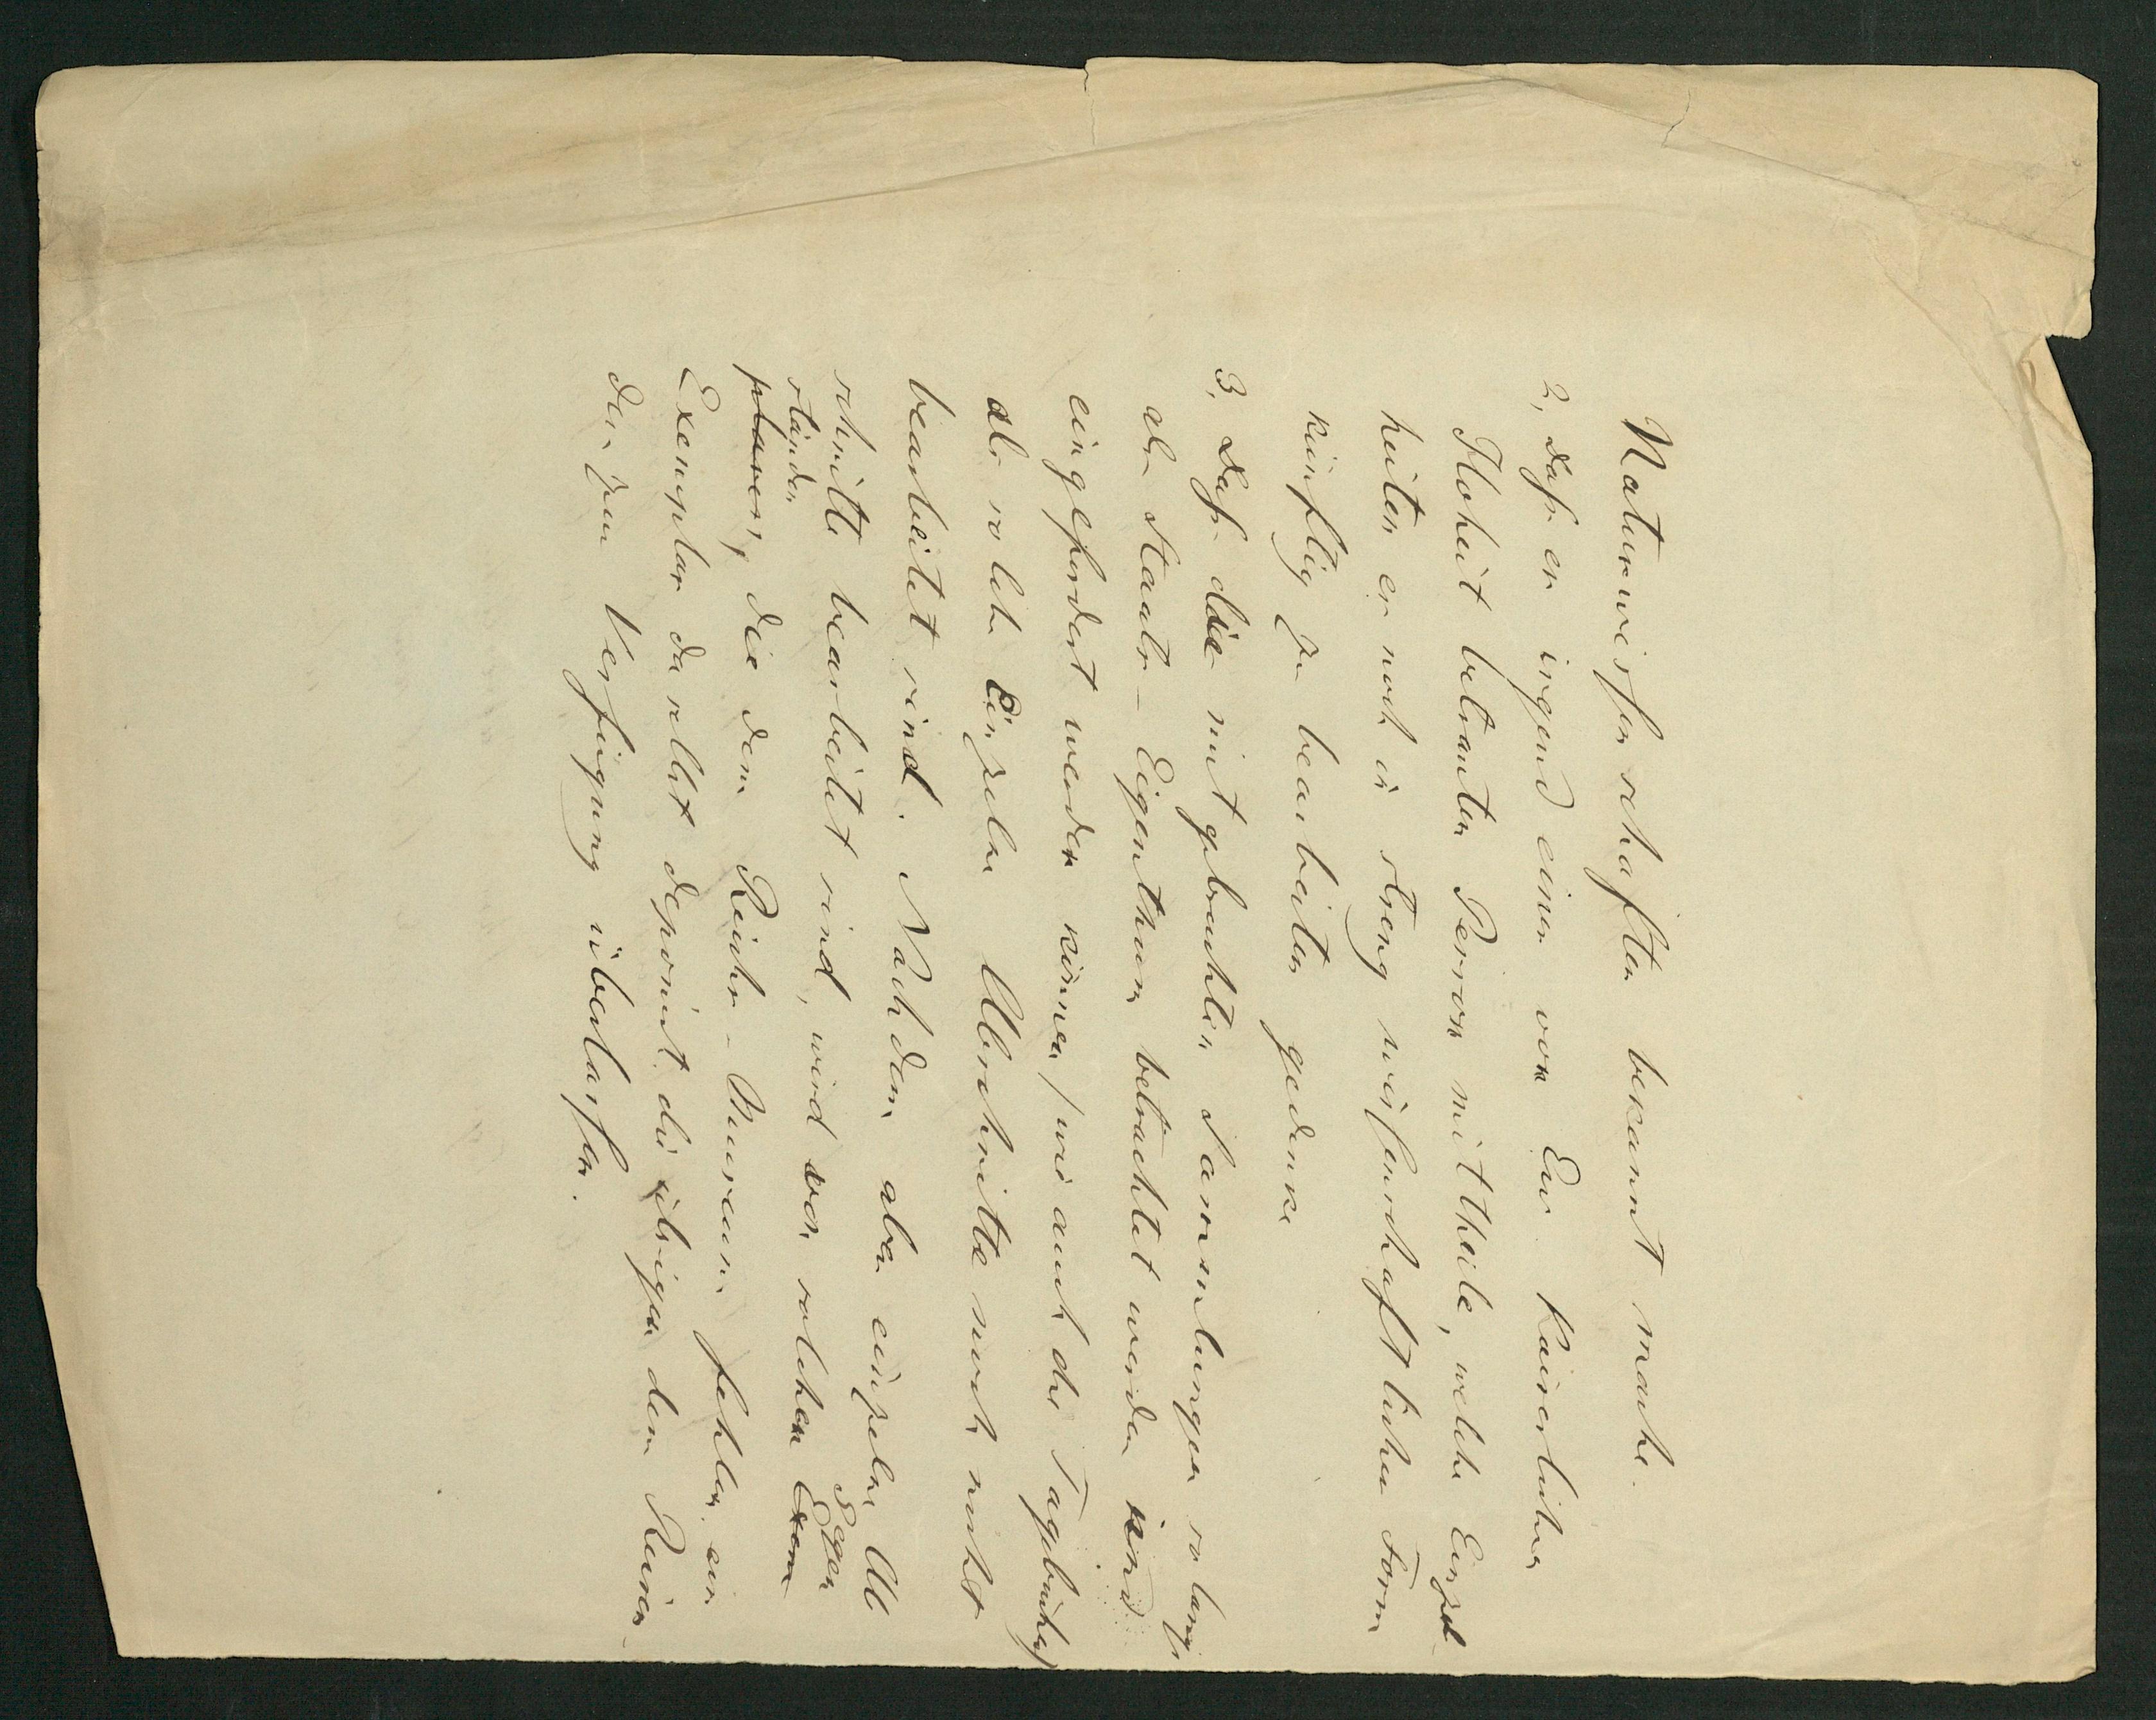 Naturwissenschaften bekannt mache.
2, dass er irgend einer von Eur Kaiserlichen
Hoheit betrauten Person mittheile, welche Einzel-
heiten er noch in streng wissenschaftlichen Form
künftig zu bearbeiten gedenke
3, dass die mitgebrachten Sammlungen so lange
als Staats-Eigenthum betrachtet werden und
eingefordert werden können / wie auch die Tagbücher /
als solche Einzelne Abschnitte noch nicht
bearbeitet sind. Nachdem aber einzelne Ab
schnitte bearbeitet sind, wird von solchen Exem Gegen
plaren, ständen die dem Reichs-Museum fehlen ein
Exemplar daselbst deponirt die übrigen dem Reisen-
den zur Verfügung überlassen.